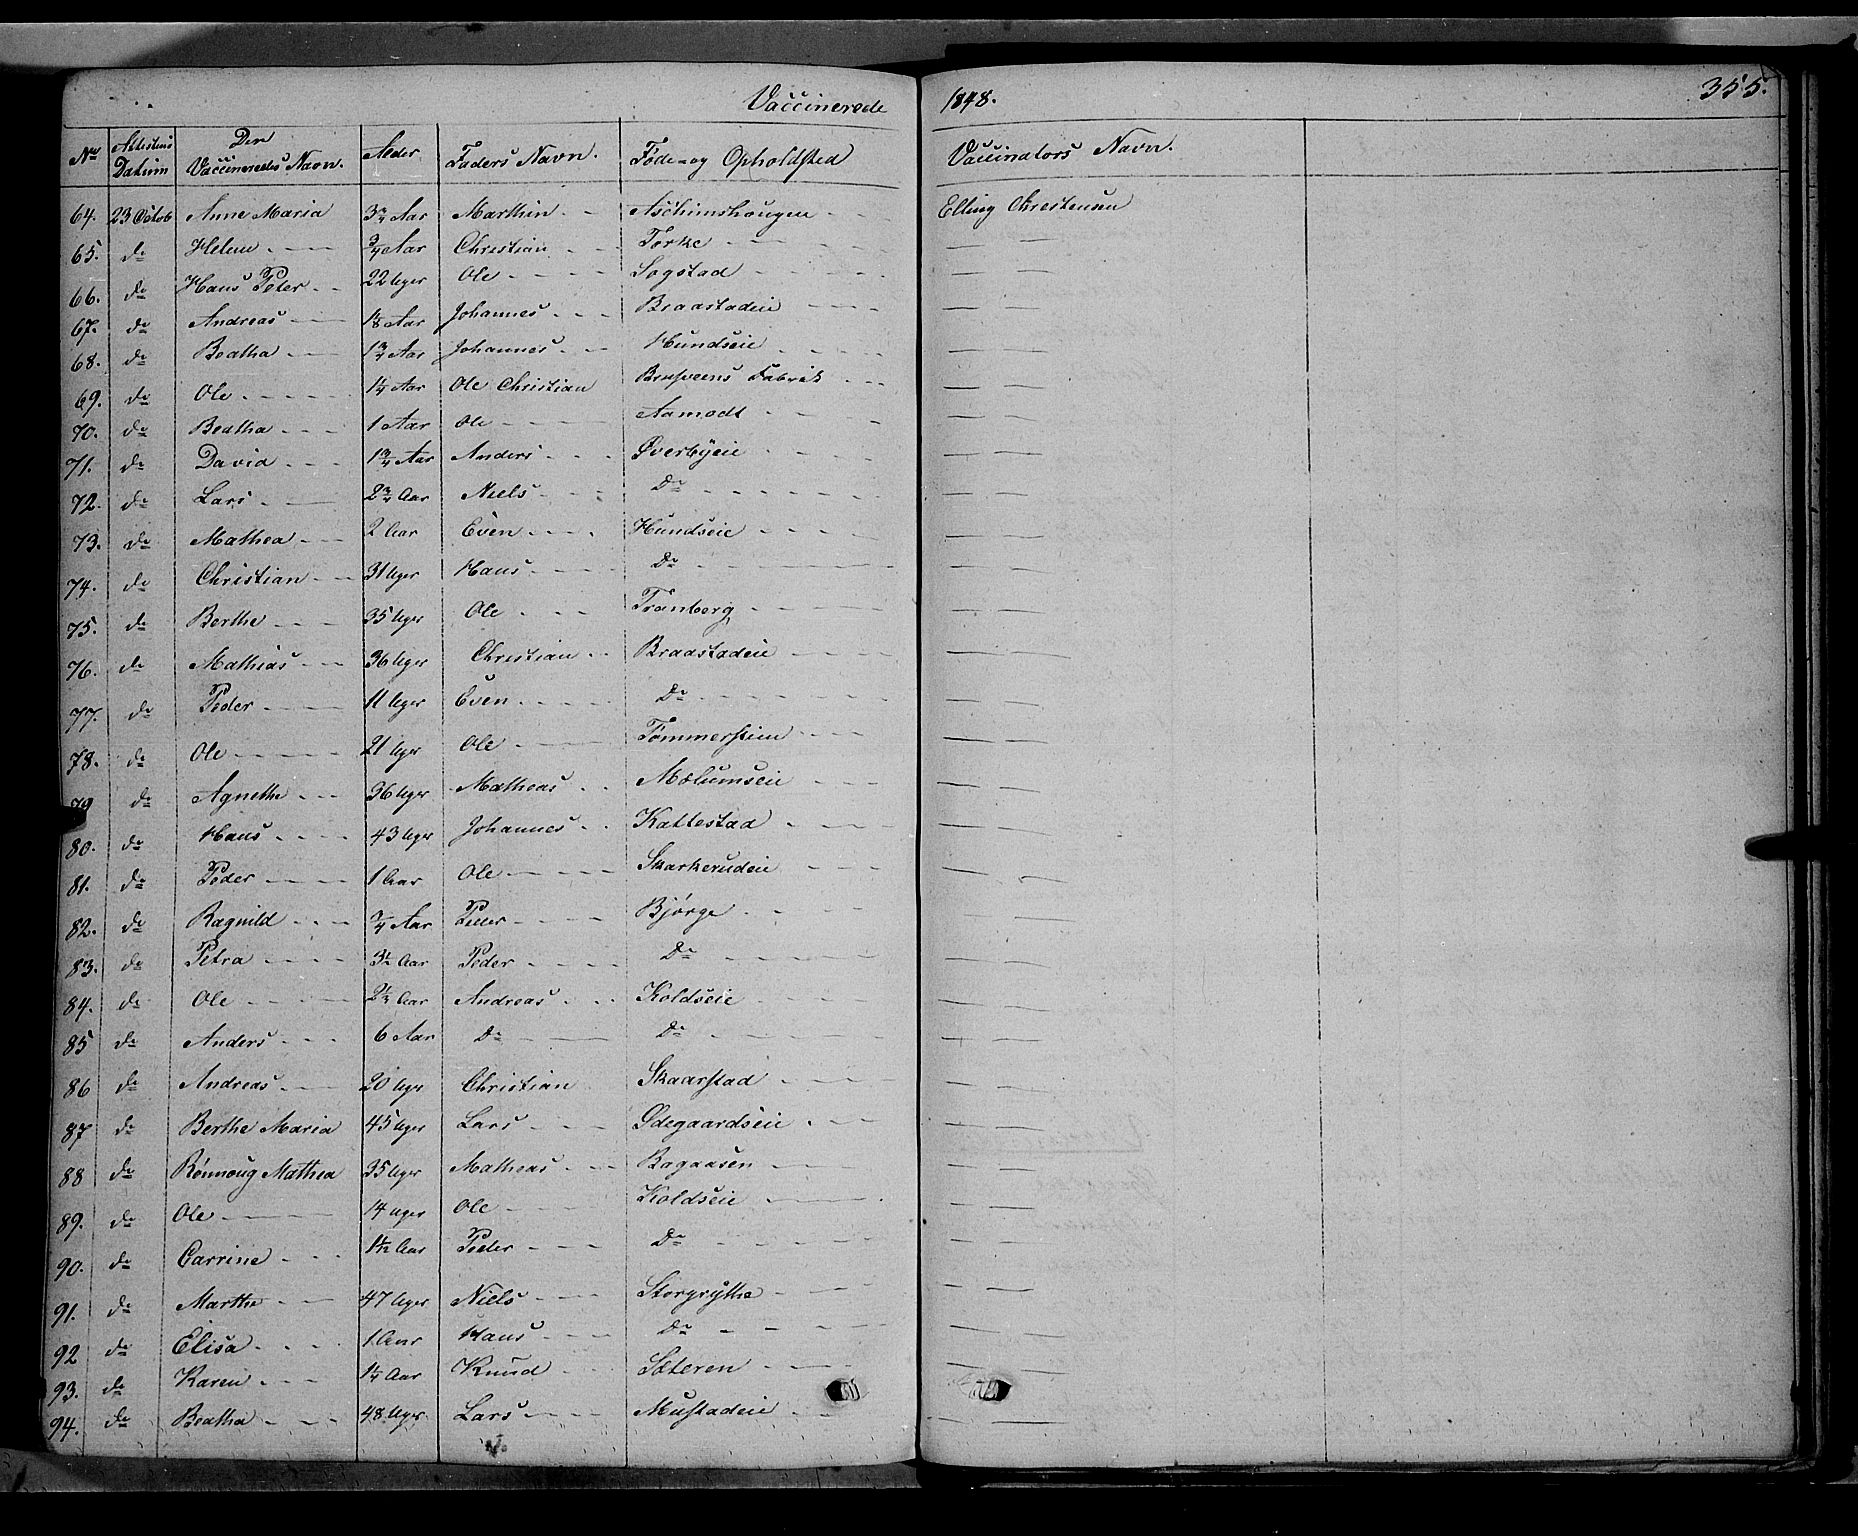 Vaccinerede 1848. 355.
No Attestens Datum Den Vaccineredes Navn. Alder Faders Navn. Føde- og Opholdsted Vaccinators Navn.
64. 23 Octob Anne Maria 3/4 Aar Marthin Aschimshougen Elling Christensen
65. do Helene 3/4 Aar Christian Tørke
66. do Hans Peter 22 Uger Ole Sogstad
67. do Andreas 1/8 Aar Johannes Braastadeie
68. do Beatha 1 3/4 Aar Johannes Hundseie
69. do Ole 1 1/4 Aar Ole Christian Brusveens Fabrik
70. do Beatha 1 Aar Ole Aamodt
71. do David 1 3/4 Aar Anders Øverbyeie
72. do Lars 2 3/4 Aar Niels Do
73. do Mathea 2 Aar Even Hundseie
74. do Christian 31 Uger Hans Do
75. do Berthe 35 Uger Ole Tranberg
76. do Mathias 36 Uger Christian Braastadeie
77. do Peder 11 Uger Even Do
78. do Ole 21 Uger Ole Tømmerstien
79 do Agnethe 36 Uger Matheas Mælumseie
80. do Hans 43 Uger Johannes Kattestad
81. do Peder 1 Aar Ole Skarkerudeie
82. do Ragnild 3/4 Aar Peder Bjørge
83. do Petra 3 1/2 Aar Peder Do
84. do Ole 2 1/2 Aar Andreas Koldseie
85 do Anders 6 Aar Do Do
86 do Andreas 20 Uger Christian Skaarstad
87 do Berthe Maria 45 Uger Lars Ødegaardseie
88 do Rønnoug Mathea 35 Uger Matheas Bagaasen
89. do Ole 14 Uger Ole Koldseie
90. do Carrine 1 1/12 Aar Peder Do
91. do Marthe 47 Uger Niels Storgrythe
92 do Elisa 1 Aar Hans Do
93. do Karen 1 1/4 Aar Knud Sæteren
94. do Beatha 48 Uger Lars Mustadeie